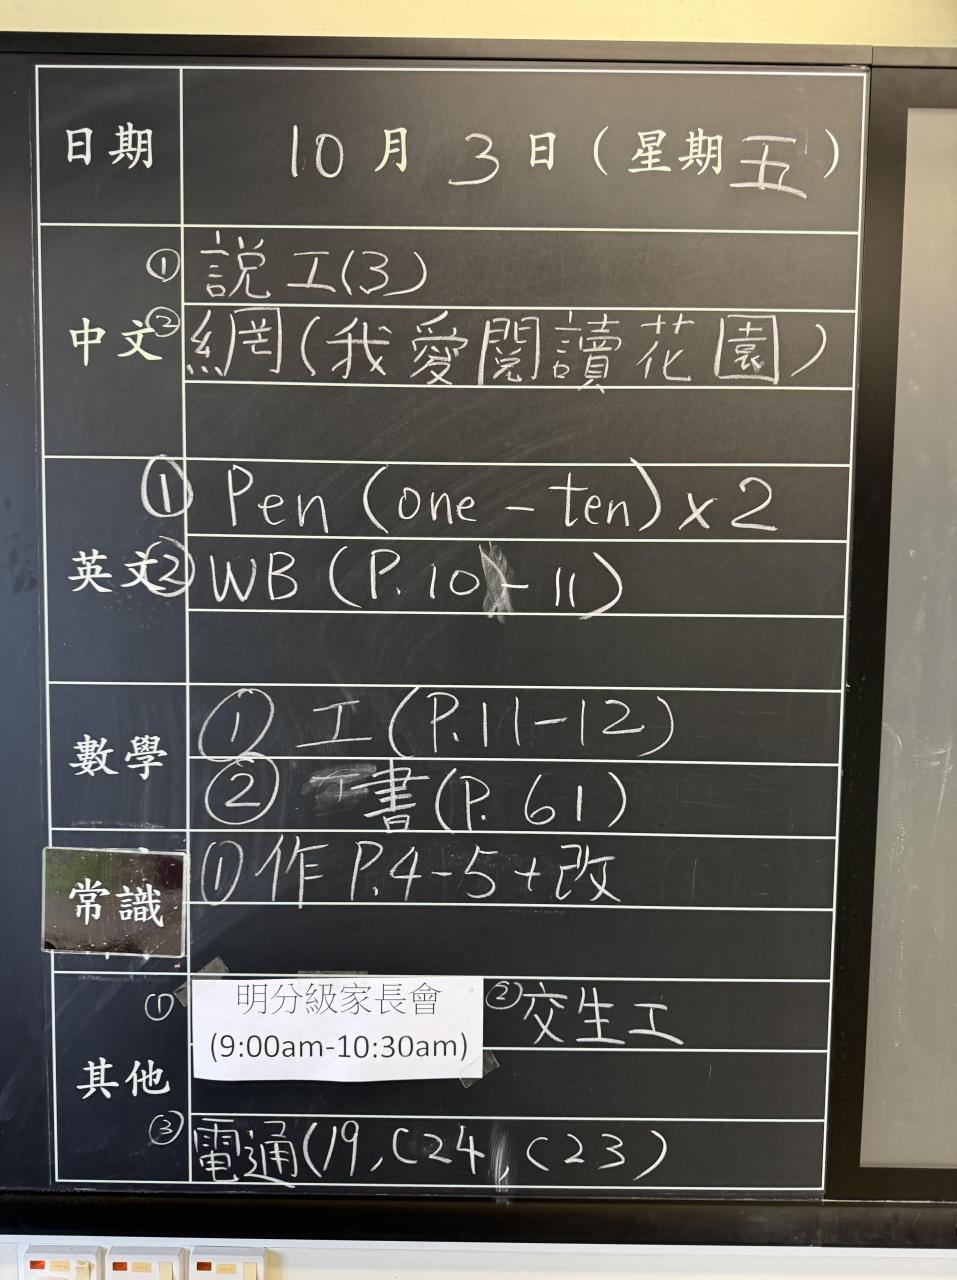 日期 10月3日(星期五)
中文
① 説工(3)
② 網(我愛閱讀花園)
英文
① Pen (one - ten) x 2
② WB (P. 10 - 11)
數學
① 工(P.11-12)
② 書(P. 61)
常識
① 作 P.4-5+改
其他
① 明分級家長會
(9:00am-10:30am)
② 交生工
③ 電通(19, C24, C23)